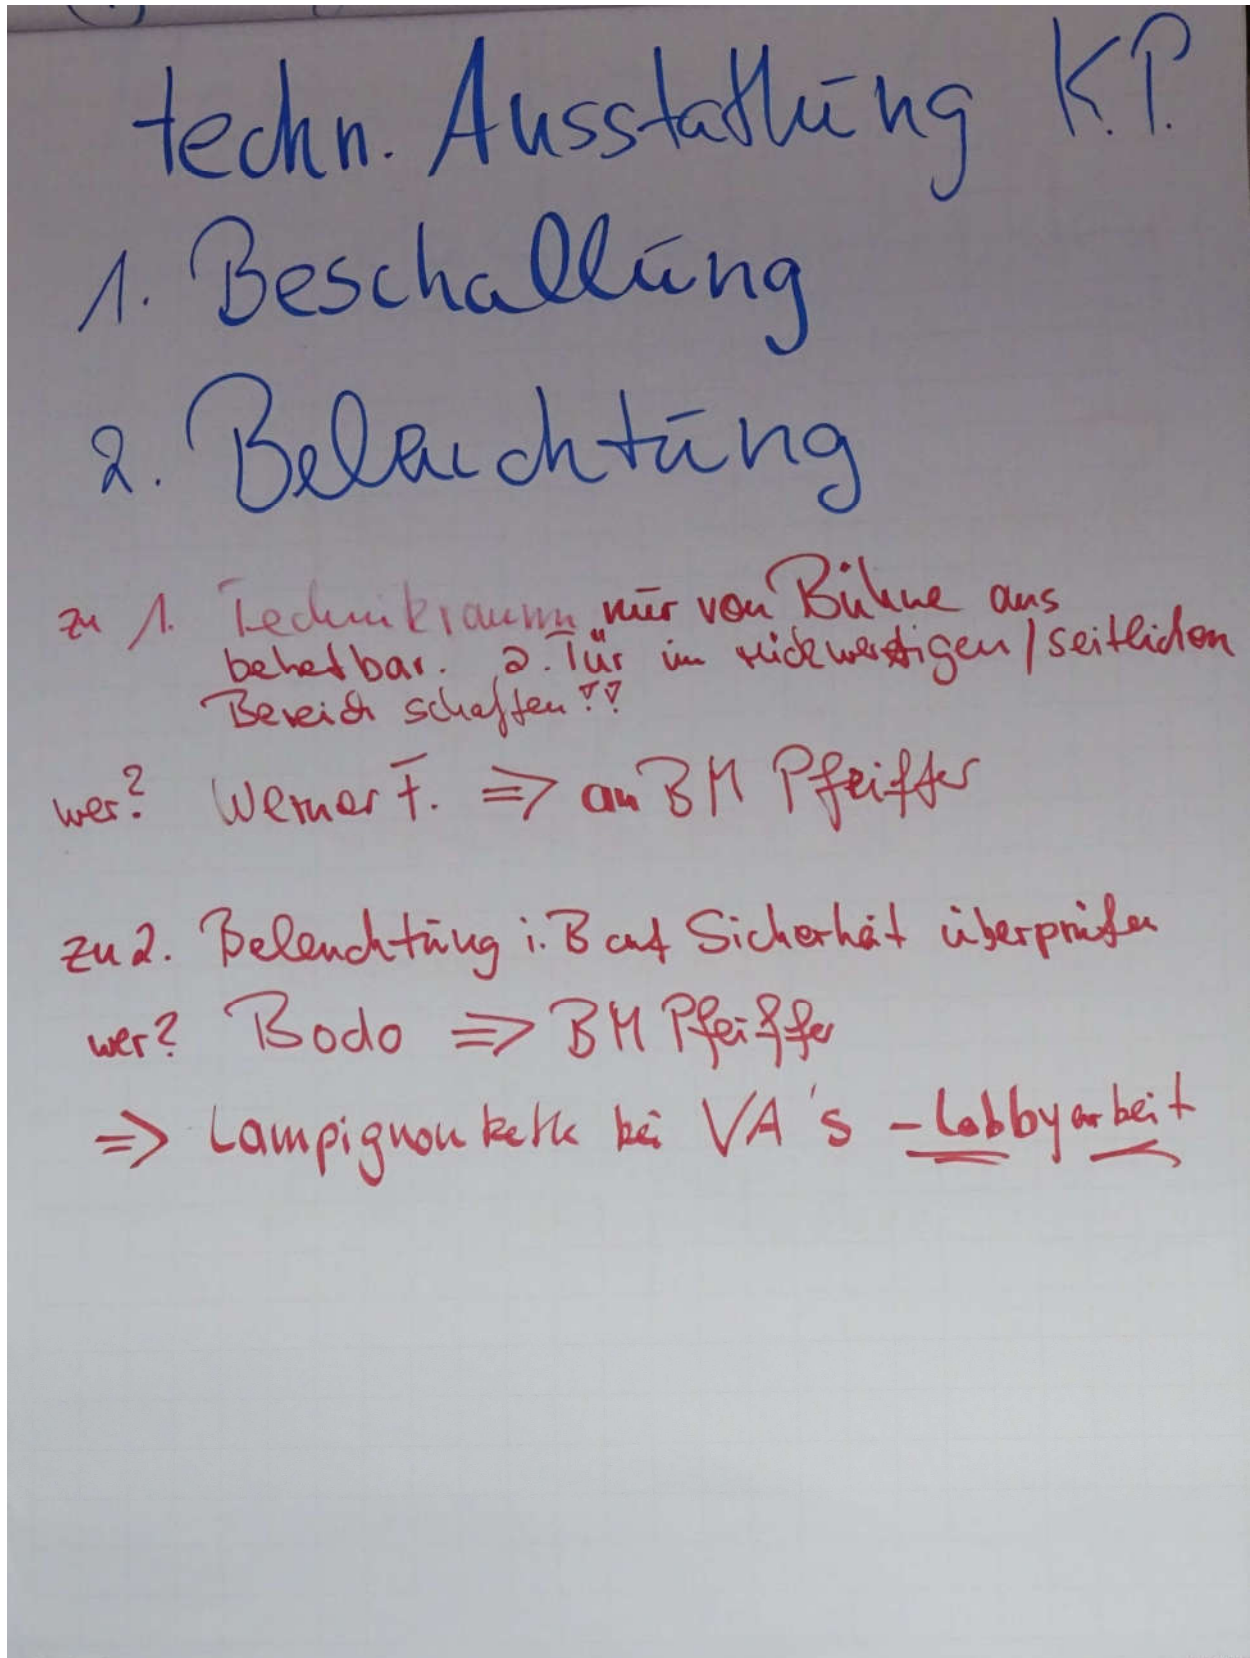 techn. Ausstattung K.P.
1. Beschallung
2. Beleuchtung
zu 1. Technikraum nur von Bühne aus
betretbar. 2. Tür im rückwertigen / seitlichen
Bereich schaffen!!
wer? Werner F. => an BM Pfeiffer
zu 2. Beleuchtung i. B auf Sicherheit überprüfen
wer? Bodo => BM Pfeiffer
=> Lampignonkette bei VA's - Lobbyarbeit